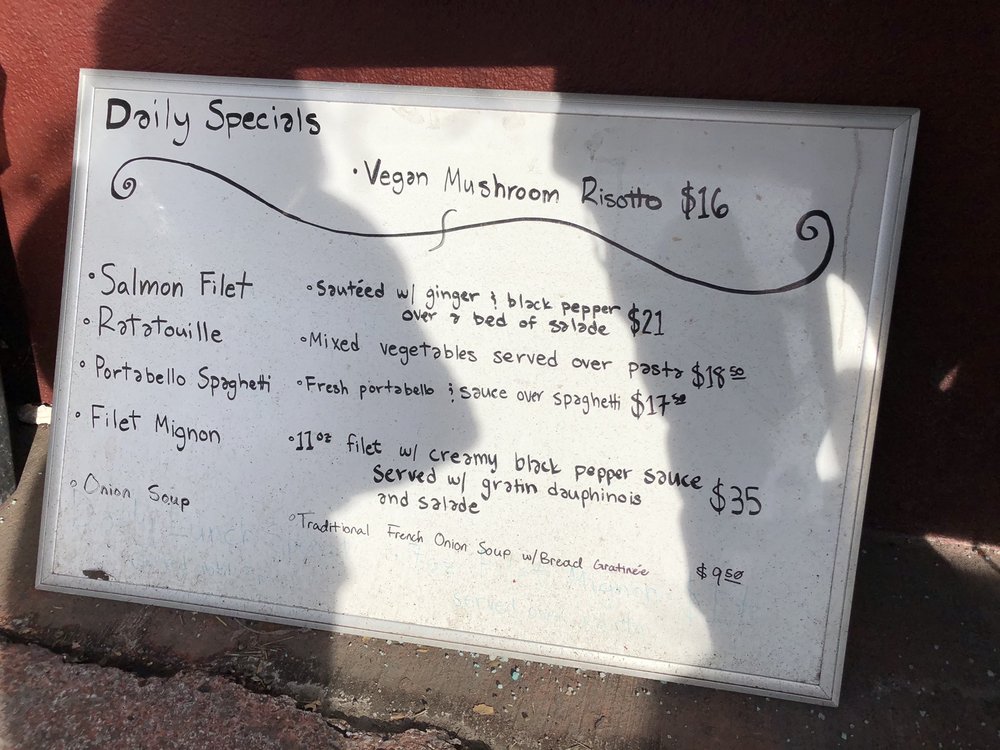 Daily Specials
• Vegan Mushroom Risotto $16
• Salmon Filet • Sautéed w/ ginger & black pepper
over a bed of salade $21
• Ratatouille • Mixed vegetables served over pasta $18.50
• Portabello Spaghetti • Fresh portabello & sauce over spaghetti $17.50
• Filet Mignon • 11oz filet w/ creamy black pepper sauce
served w/ gratin dauphinois
and salade $35
• Onion Soup • Traditional French Onion Soup w/ Bread Gratinée $9.50
served over